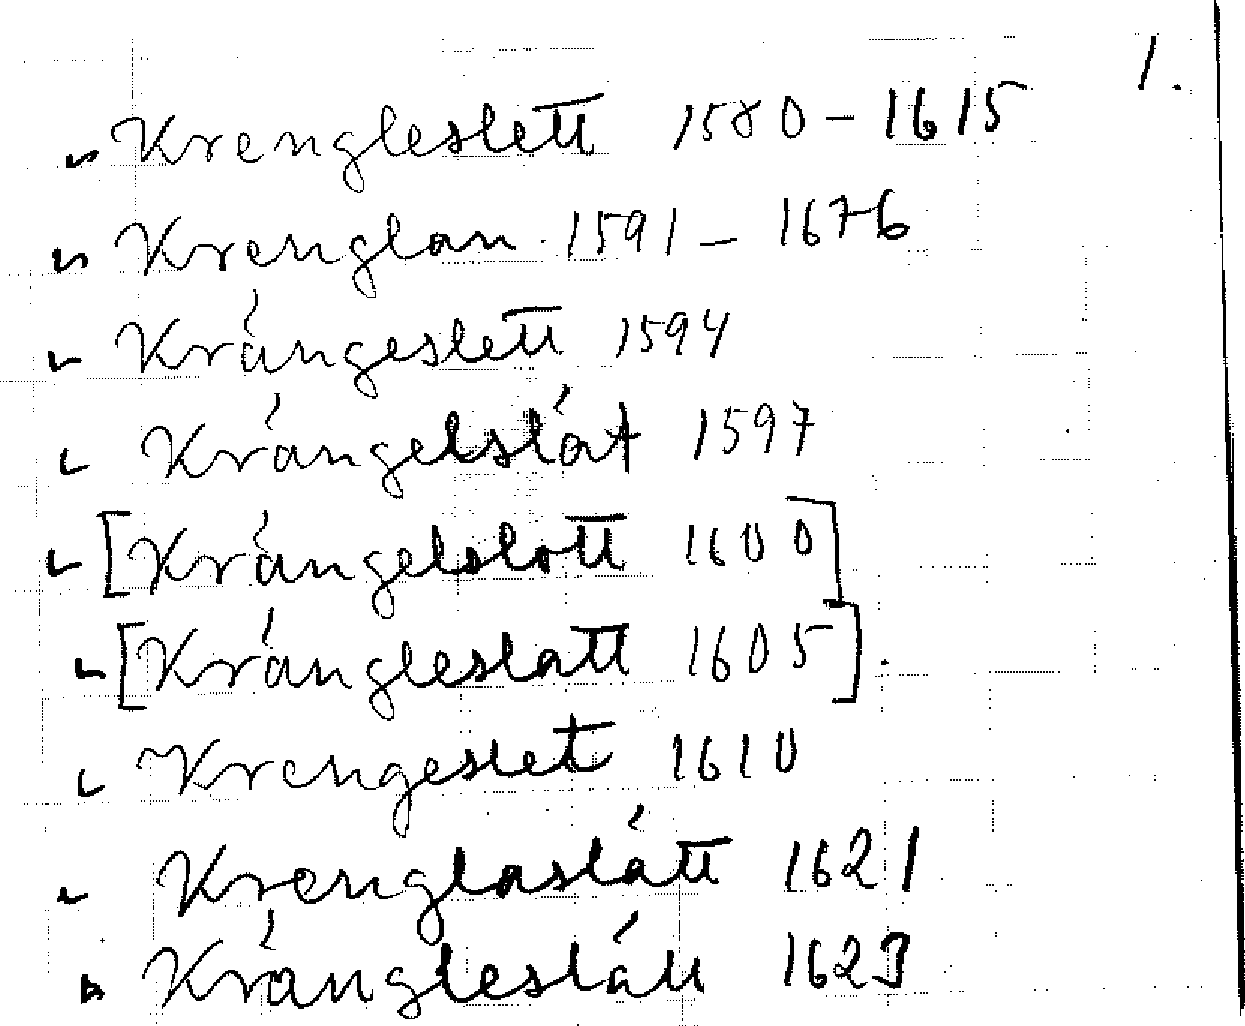 1.
Krengleslett 1580 - 1615
Krenglan 1591 - 1676
Krángeslett 1594
Krángelslát 1597
[Krángelslott 1600]
[Krángleslatt 1605].
Krengeslet 1610
Krenglaslátt 1621
Krángleslátt 1623